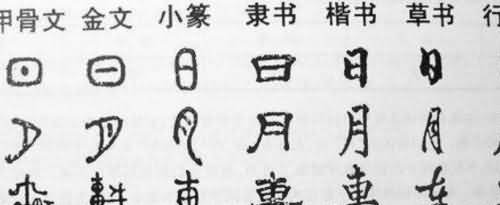 甲骨文 金文 小篆 隶书 楷书 草书 行
日 日 日 日 日 日
月 月 月 月 月 月
車 車 車 車 車 车